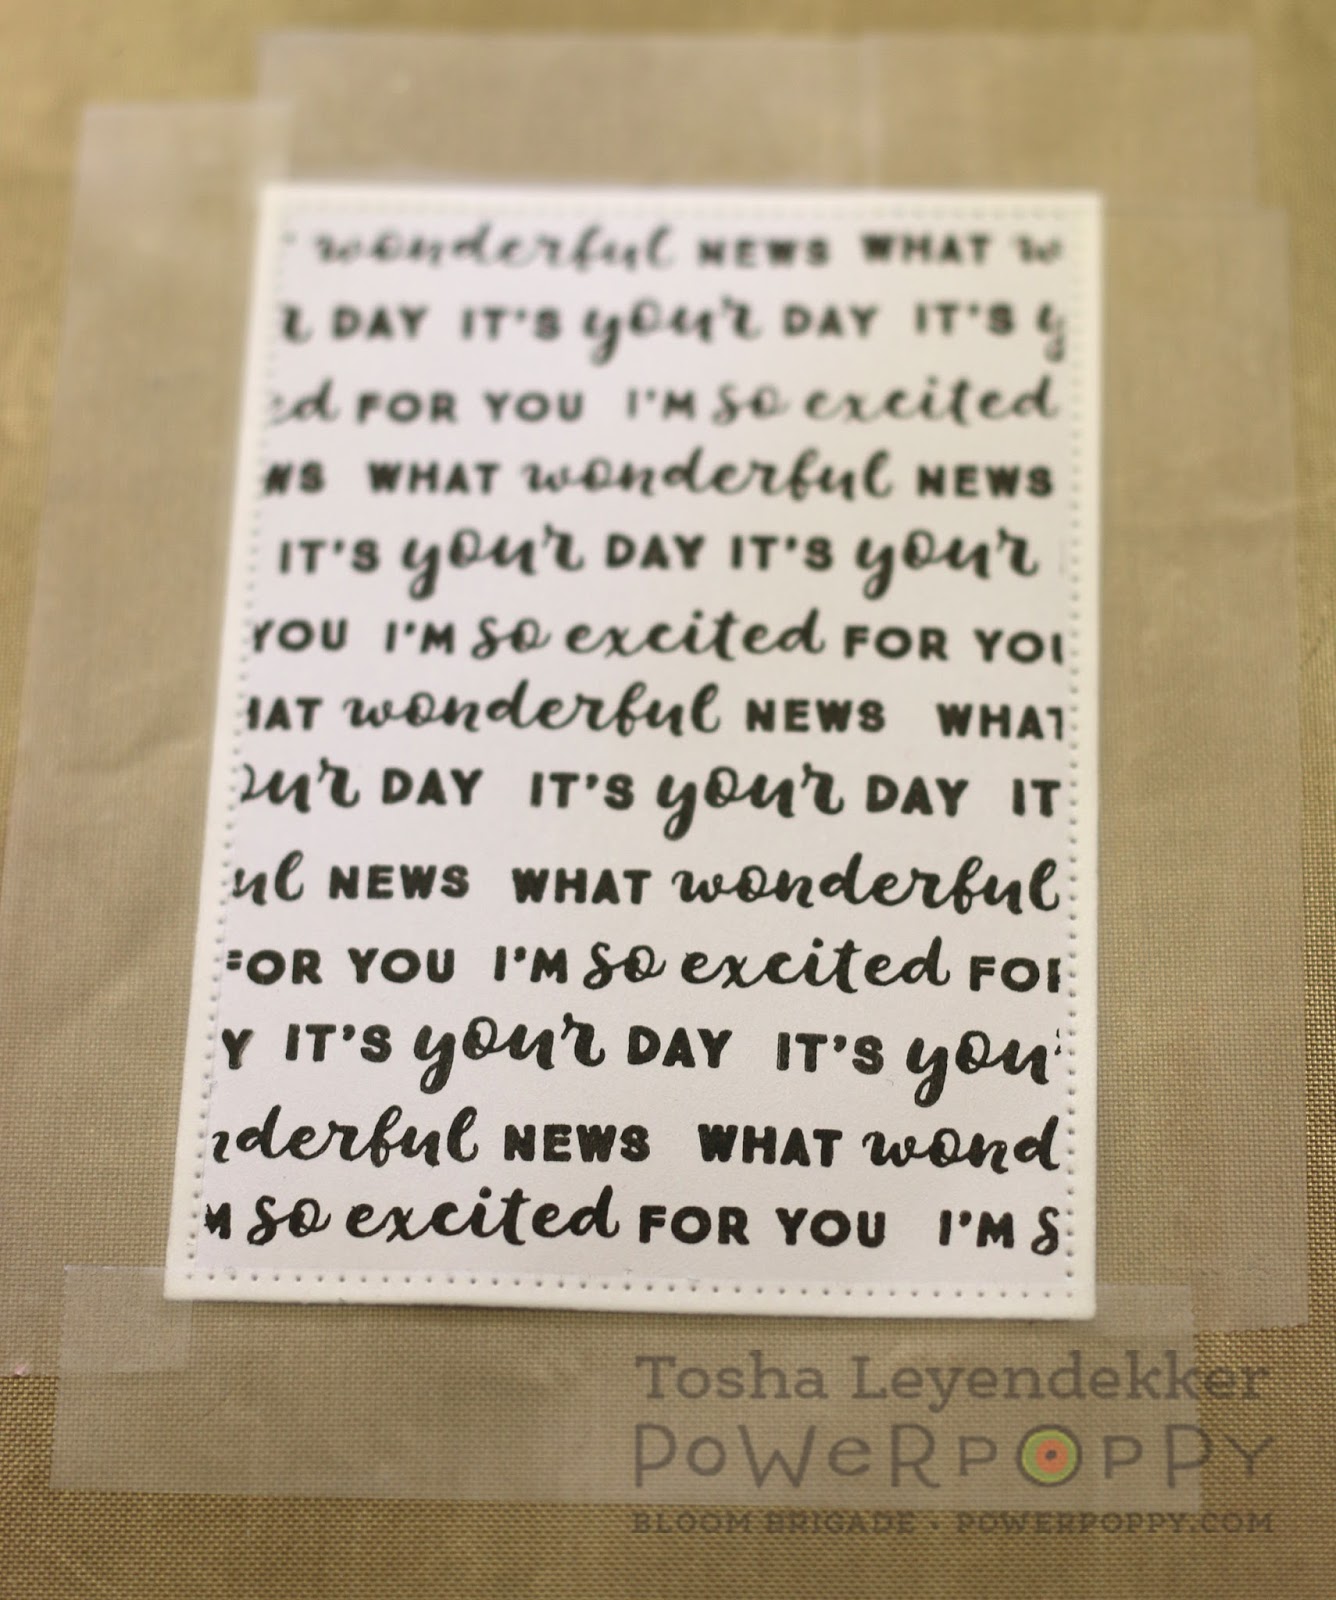 wonderful NEWS WHAT w
r DAY IT'S your DAY IT'S y
ed FOR YOU I'M so excited
WS WHAT wonderful NEWS
IT'S your DAY IT'S your
YOU I'M so excited FOR YOU
HAT wonderful NEWS WHAT
our DAY IT'S your DAY IT
ul NEWS WHAT wonderful
FOR YOU I'M so excited FOR
Y IT'S your DAY IT'S your
nderful NEWS WHAT wond
M so excited FOR YOU I'M S
Tosha Leyendekker
POWERPOPPY
BLOOM BRIGADE • POWERPOPPY.COM